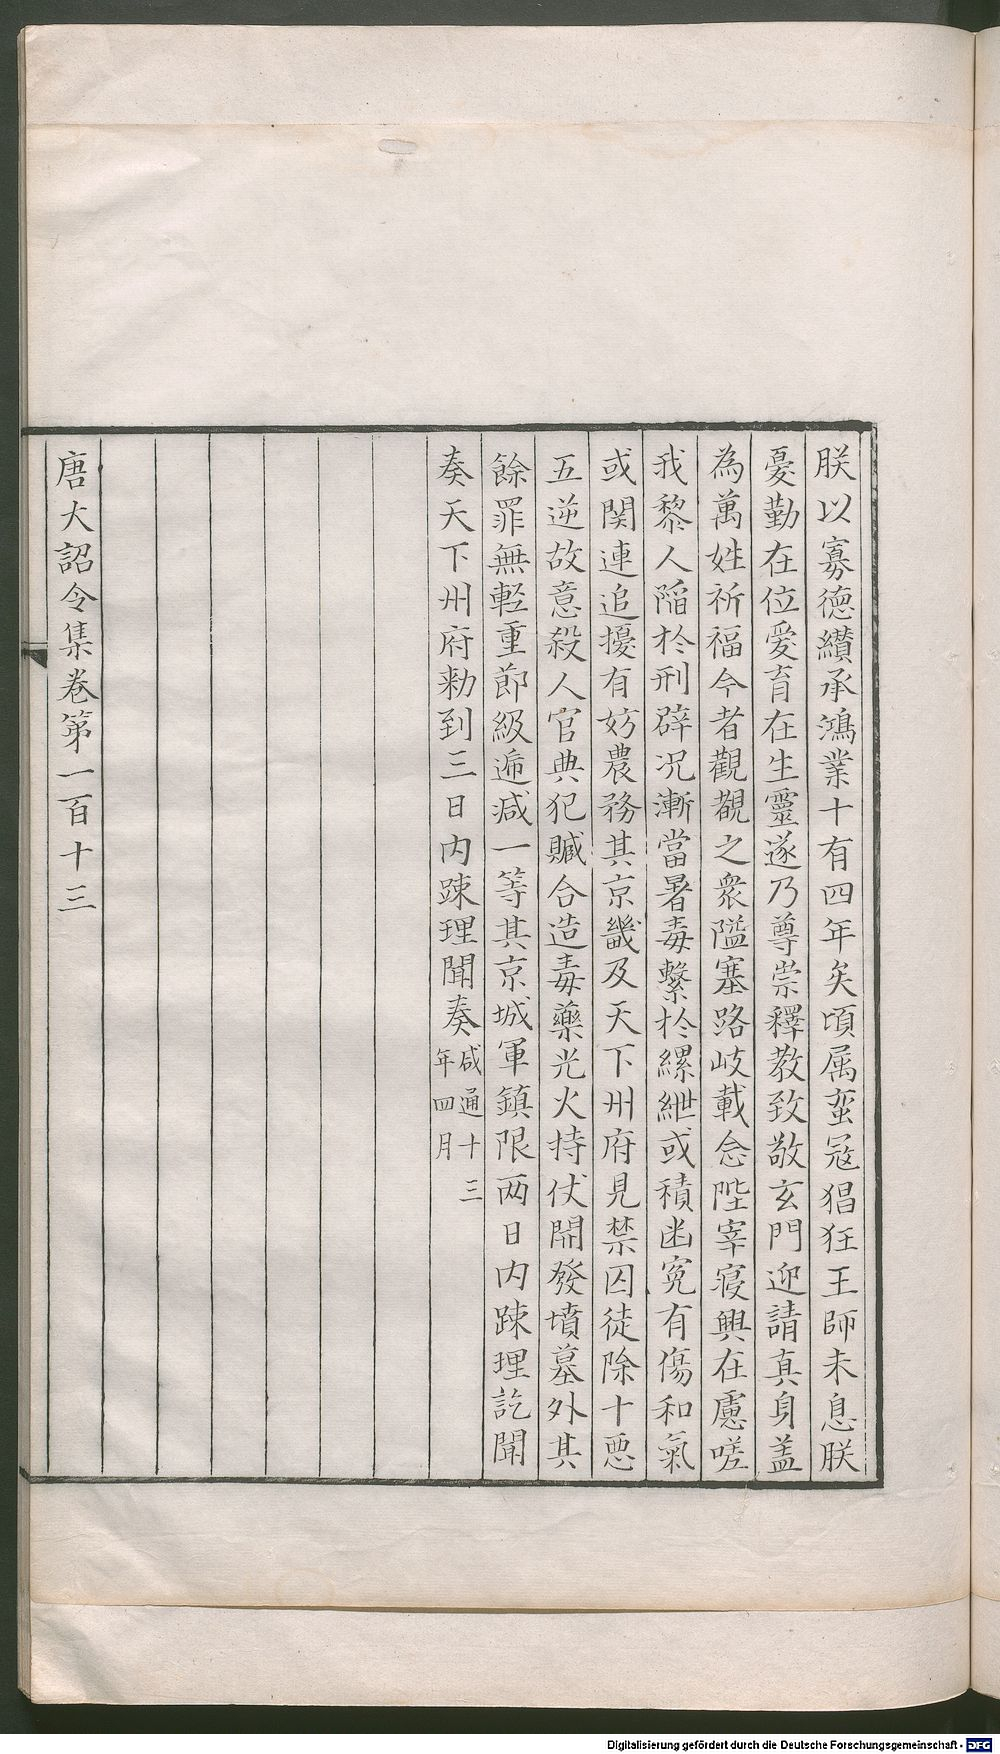 朕以寡德纘承鴻業十有四年矣頃属蛮冦猖狂王師未息朕
憂勤在位爱育在生靈遂乃尊崇釋教致敬玄門迎請真身盖
為萬姓祈福今者觀覩之衆隘塞路岐載念陛宰寝興在慮嗟
我黎人陥於刑辟况漸當暑毒繫於縲紲或積凼寃有傷和氣
或関連追擾有妨農務其京畿及天下州府見禁囚徒除十悪
五逆故意殺人官典犯贓合造毒藥光火持仗開發墳墓外其
餘罪無輕重節級遞减一等其京城軍鎮限两日内踈理訖聞
奏天下州府勑到三日内踈理聞奏咸通十三
年四月
唐大詔令集卷第一百十三
Digitalisierung gefördert durch die Deutsche Forschungsgemeinschaft - DFG